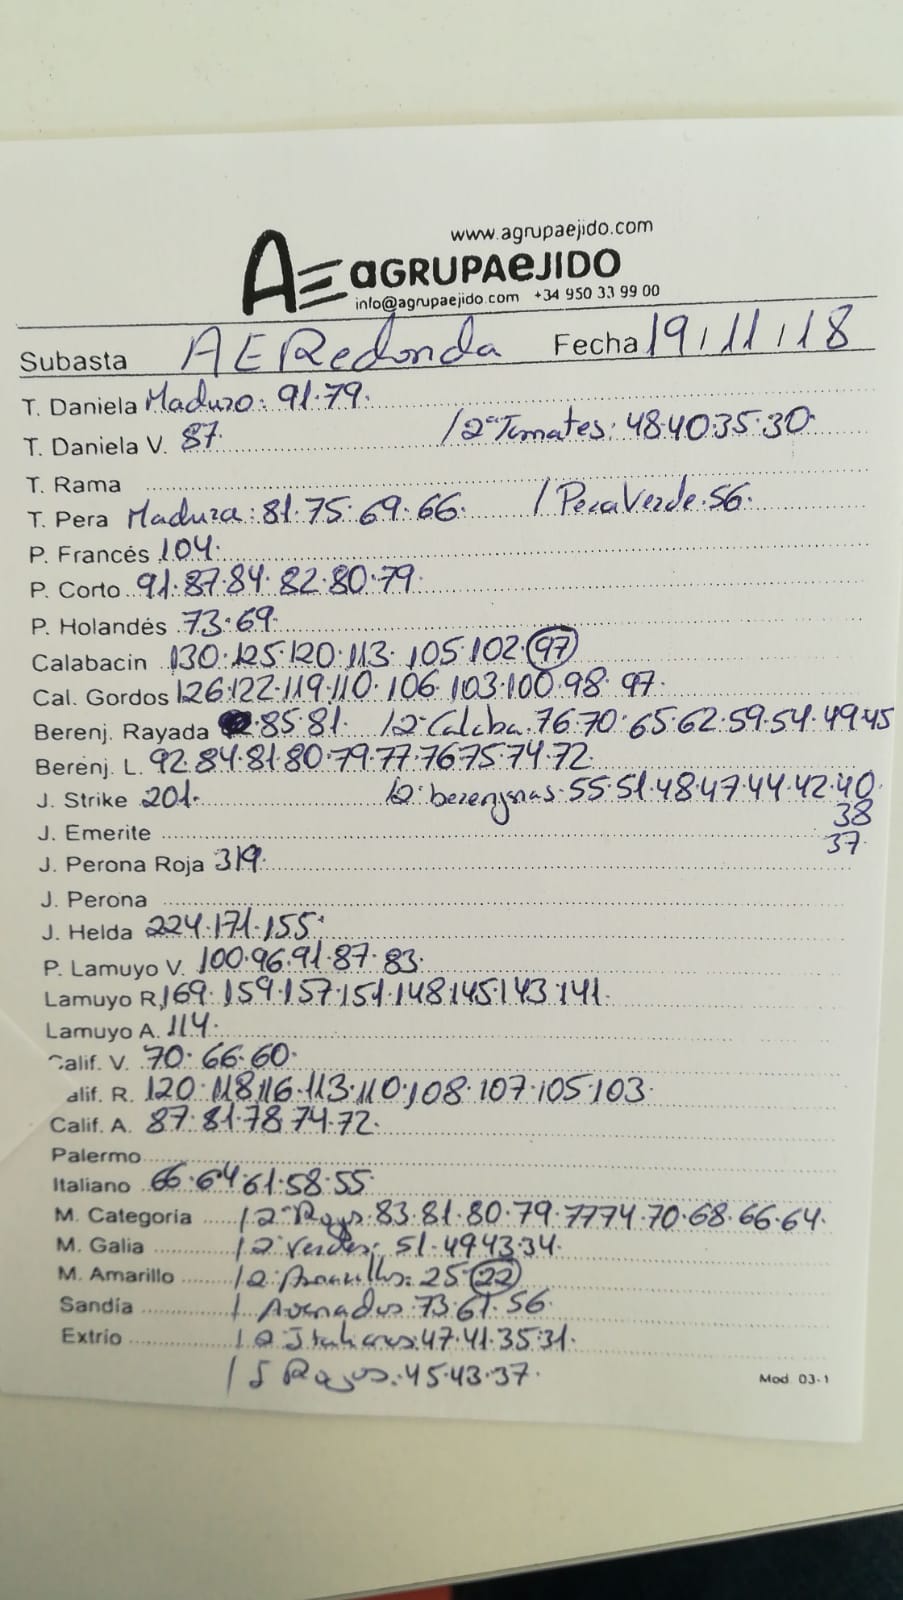 www.agrupaejido.com
AE aGRUPAeJIDO
info@agrupaejido.com +34 950 33 99 00
Subasta AE Redonda Fecha 19/11/18
T. Daniela Maduro: 91.79.
T. Daniela V. 87. /2ª Tomates: 48.40.35.30.
T. Rama
T. Pera Madura: 81.75.69.66. / Pera Verde. 56.
P. Francés 104.
P. Corto 91.87.84.82.80.79.
P. Holandés 73.69.
Calabacin 130.125.120.113.105.102.97
Cal. Gordos 126.122.119.110.106.103.100.98.97.
Berenj. Rayada 85.81. /2ª Calaba. 76.70.65.62.59.54.49.45
Berenj. L. 92.84.81.80.79.77.76.75.74.72.
J. Strike 201. /2ª berenjenas. 55.51.48.47.44.42.40.
38
J. Emerite 37.
J. Perona Roja 319.
J. Perona
J. Helda 224.171.155.
P. Lamuyo V. 100.96.91.87.83.
Lamuyo R. 169.159.157.151.148.145.143.141.
Lamuyo A. 114.
Calif. V. 70.66.60.
alif. R. 120.118.116.113.110.108.107.105.103.
Calif. A. 87.81.78.74.72.
Palermo
Italiano 66.64.61.58.55.
M. Categoria /2ª Rojos. 83.81.80.79.77.74.70.68.66.64.
M. Galia /2ª Verdes: 51.49.43.34.
M. Amarillo /2ª Amarillos: 25.22
Sandía / Asurados. 73.61.56.
Extrio /2ª Italianos. 47.41.35.31.
/ S Rojos. 45.43.37.
Mod. 03-1